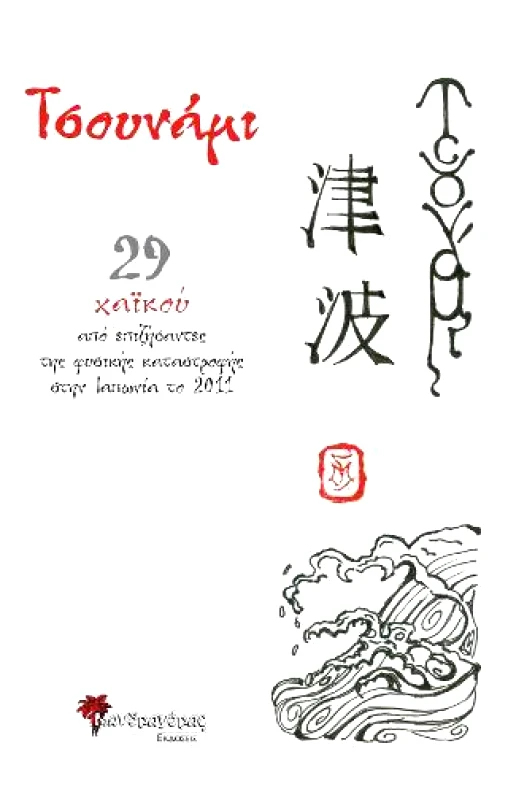 Τσουνάμι
29
χαϊκού
από επιζήσαντες
της φυσικής καταστροφής
στην Ιαπωνία το 2011
津波
Τσουναμι
μανδραγόρας
Εκδόσεις